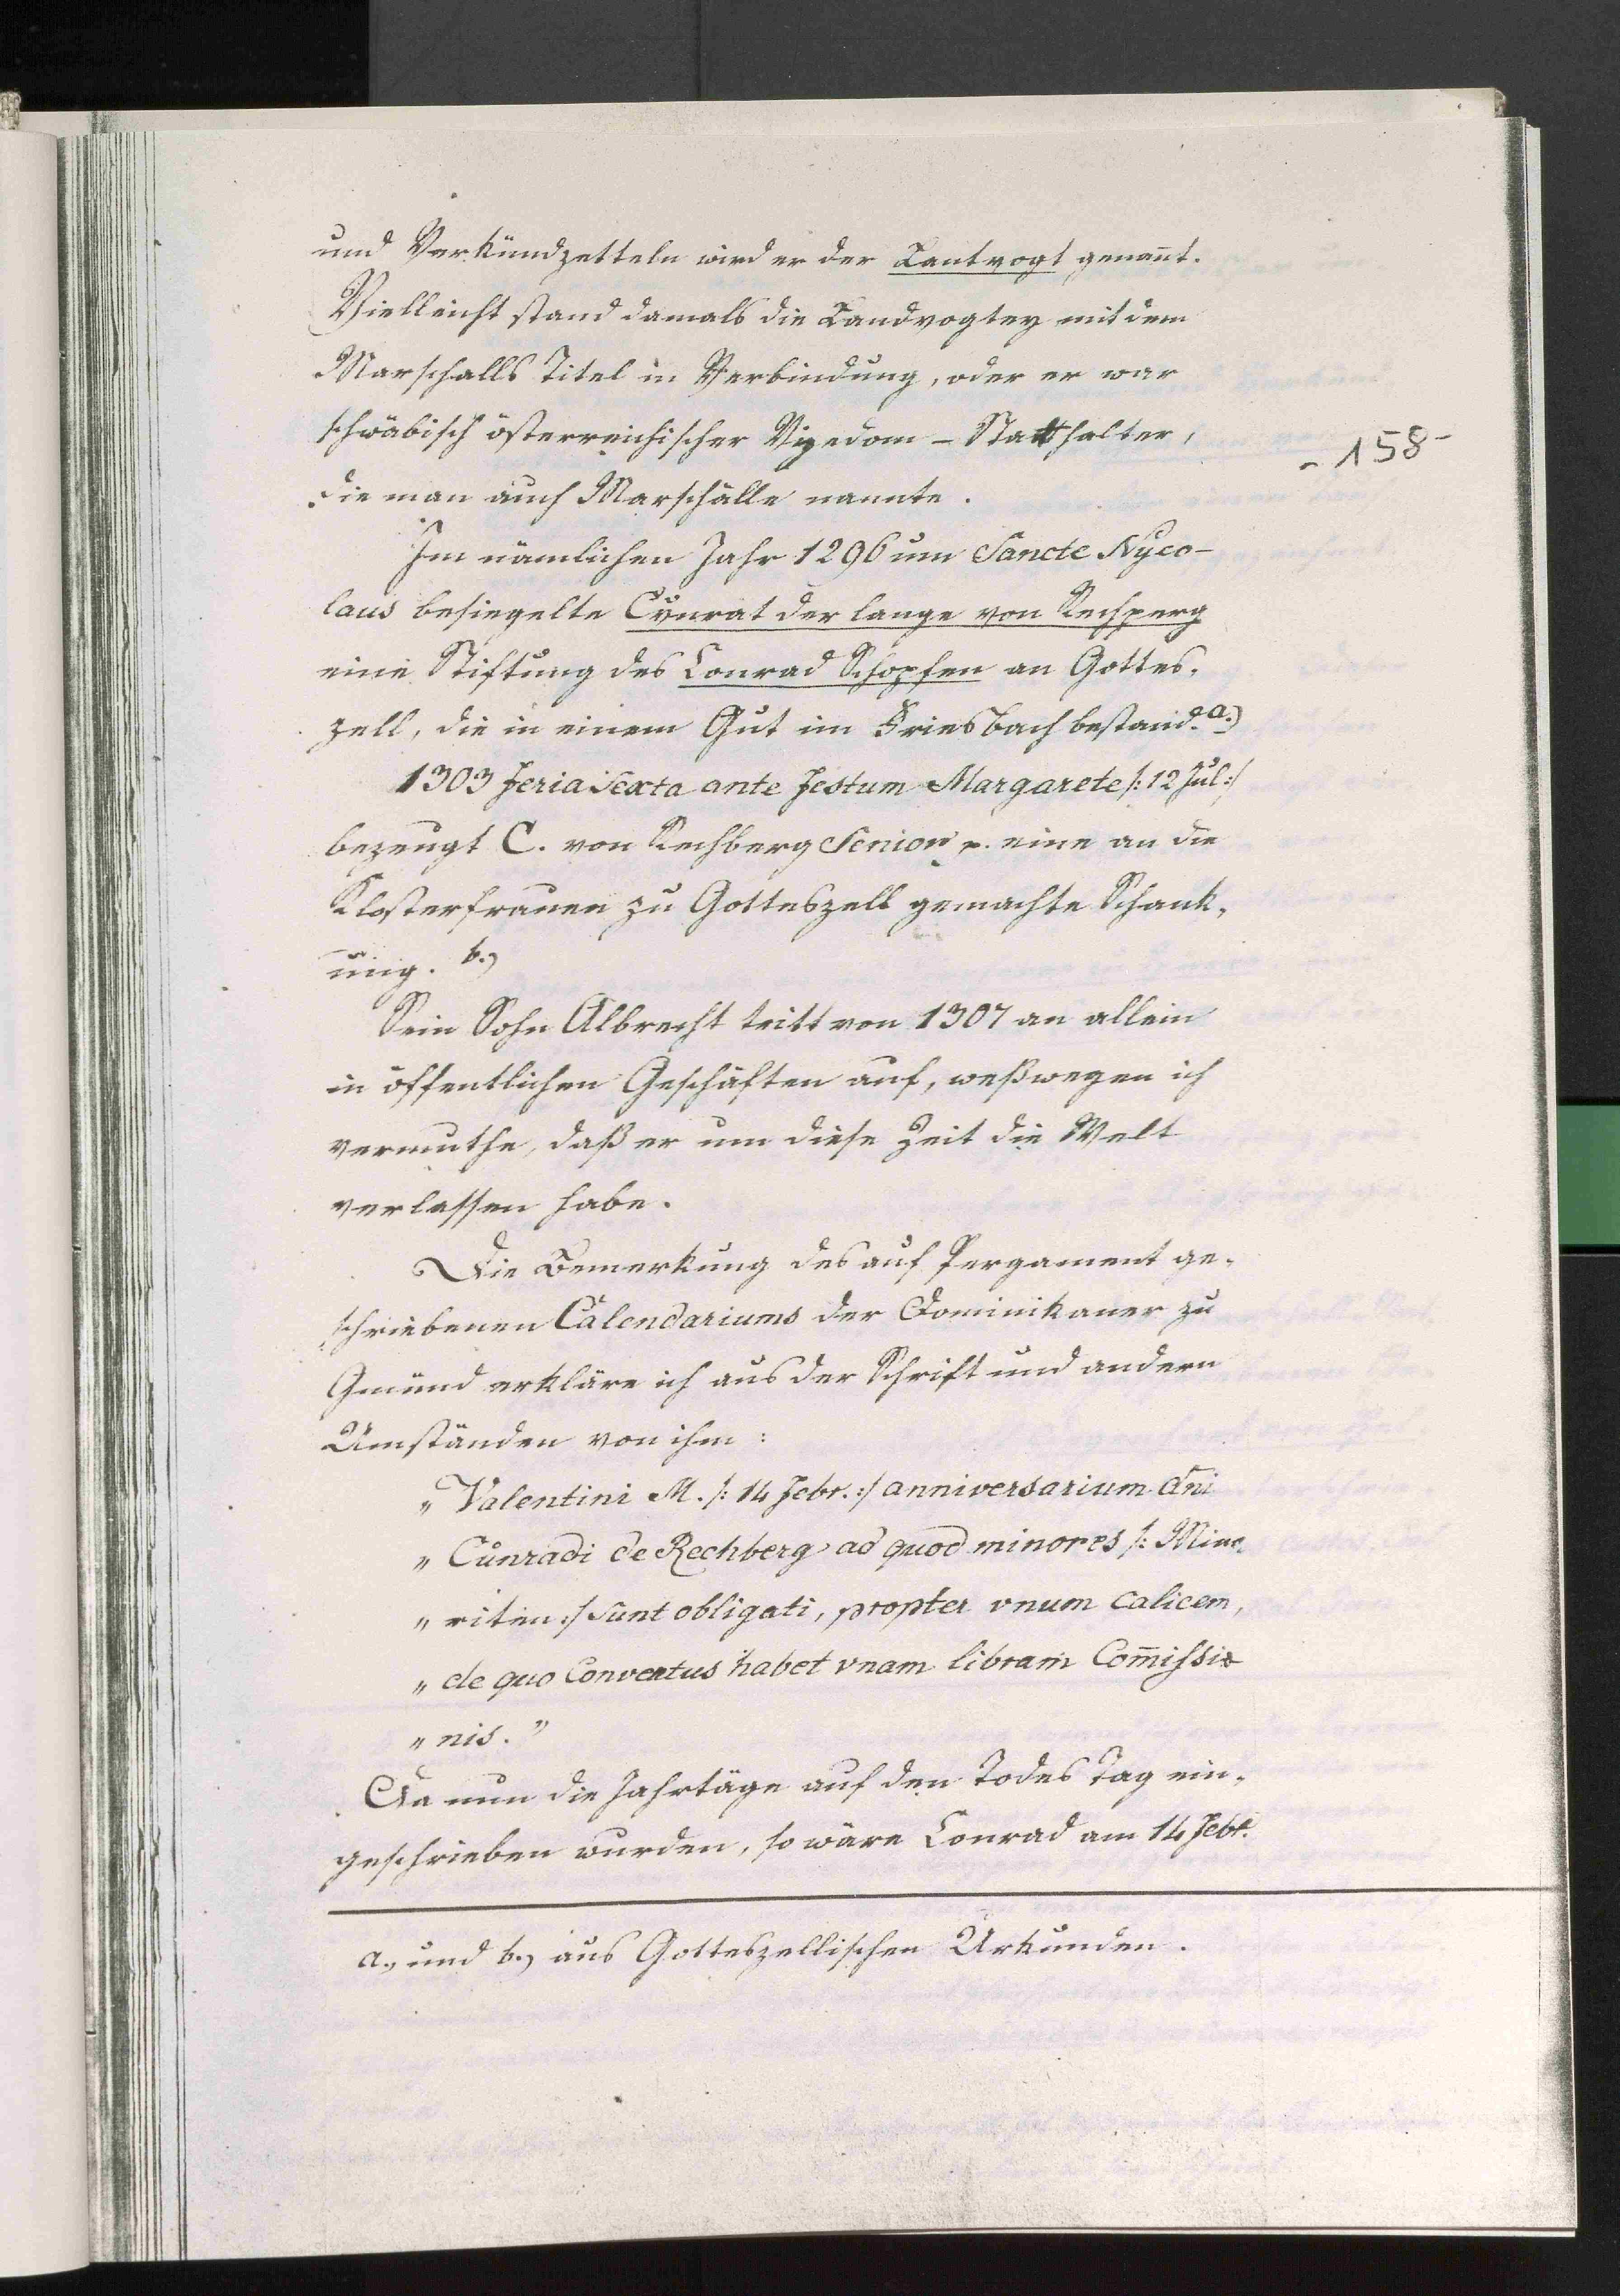 und Verkündzetteln wird er der Lantvogt genañt.
Vielleicht stand damals die Landvogtey mit dem
Marschalls Titel in Verbindung, oder er war
schwäbisch österreichischer Vizedom - Statthalter,
- 158 -
die man auch Marschälle nannte.
Im nämlichen Jahr 1296 um Sancte Nyco-
laus besiegelte Cvnrat der lange von Rechperg
eine Stiftung des Conrad Schopfen an Gottes-
zell, die in einem Gut im Griesbach bestand. a.)
1303 feria sexta ante festum Margarete /: 12 Jul :/
bezeugt C. von Rechberg Senior p. eine an die
Klosterfrauen zu Gotteszell gemachte Schank-
ung. b.)
Sein Sohn Albrecht tritt von 1307 an allein
in öffentlichen Geschäften auf, weßwegen ich
vermuthe, daß er um diese Zeit die Welt
verlassen habe.
Die Bemerkung des auf Pergament ge-
schriebenen Calendariums der Dominikaner zu
Gmünd erkläre ich aus der Schrift und andern
Umständen von ihm:
„ Valentini M. /: 14 Febr. :/ anniversarium dn̄i
„ Cůnradi de Rechberg ad quod minores /: Mino-
„ riten :/ sunt obligati, propter vnum calicem,
„ de quo Conventus habet vnam libram Com̄issio
„ nis. ”
Da nun die Jahrtäge auf den Todes Tag ein-
geschrieben wurden, so wäre Conrad am 14 Febr.
a., und b., aus Gotteszellischen Urkunden.